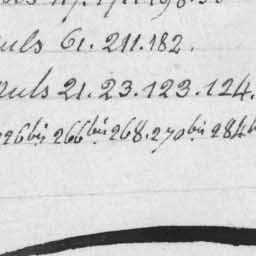 uls 61.211.182.
uls 21.23.123.124.
26 bis 266 bis 268.270 bis 284